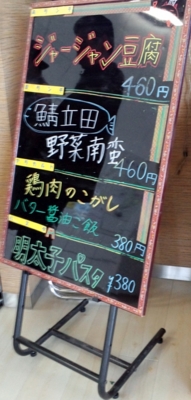 ジャージャン豆腐
460円
鯖立田
野菜南蛮
460円
鶏肉のこがし
バター醤油ご飯
380円
明太子パスタ ¥380